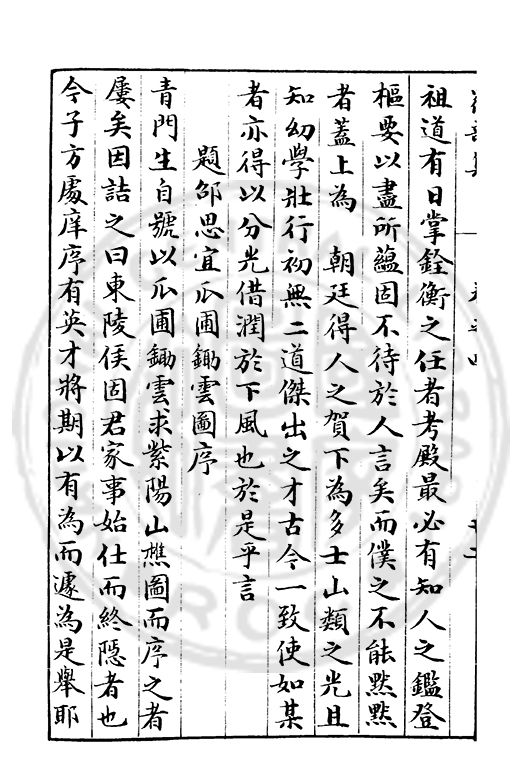 祖道有日掌銓衡之任者考殿最必有知人之鑑登
樞要以盡所蘊固不待於人言矣而僕之不能默默
者蓋上為　朝廷得人之賀下為多士山類之光且
知幼學壯行初無二道傑出之才古今一致使如某
者亦得以分光借潤於下風也於是乎言
題邵思宜瓜圃鋤雲圖序
青門生自號以瓜圃鋤雲求紫陽山樵圖而序之者
屢矣因詰之曰東陵侯固君家事始仕而終隱者也
今子方處庠序有英才將期以有為而遽為是舉耶